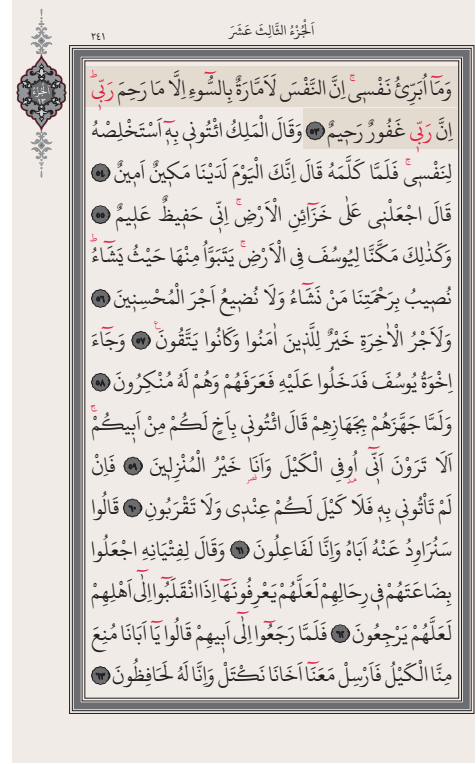 ٢٤١
اَلْجُزْءُ الثَّالِثَ عَشَرَ
اَلْجُزْءُ
وَمَٓا اُبَرِّئُ نَفْسٖيۚ اِنَّ النَّفْسَ لَاَمَّارَةٌ بِالسُّٓوءِ اِلَّا مَا رَحِمَ رَبّٖيۜ
اِنَّ رَبّٖي غَفُورٌ رَحٖيمٌ ﴿٥٣﴾ وَقَالَ الْمَلِكُ ائْتُونٖي بِهٖٓ اَسْتَخْلِصْهُ
لِنَفْسٖيۚ فَلَمَّا كَلَّمَهُ قَالَ اِنَّكَ الْيَوْمَ لَدَيْنَا مَكٖينٌ اَمٖينٌ ﴿٥٤﴾
قَالَ اجْعَلْنٖي عَلٰى خَزَٓائِنِ الْاَرْضِۚ اِنّٖي حَفٖيظٌ عَلٖيمٌ ﴿٥٥﴾
وَكَذٰلِكَ مَكَّنَّا لِيُوسُفَ فِي الْاَرْضِۚ يَتَبَوَّاُ مِنْهَا حَيْثُ يَشَٓاءُۜ
نُصٖيبُ بِرَحْمَتِنَا مَنْ نَشَٓاءُ وَلَا نُضٖيعُ اَجْرَ الْمُحْسِنٖينَ ﴿٥٦﴾
وَلَاَجْرُ الْاٰخِرَةِ خَيْرٌ لِلَّذٖينَ اٰمَنُوا وَكَانُوا يَتَّقُونَࣖ ﴿٥٧﴾ وَجَٓاءَ
اِخْوَةُ يُوسُفَ فَدَخَلُوا عَلَيْهِ فَعَرَفَهُمْ وَهُمْ لَهُ مُنْكِرُونَ ﴿٥٨﴾
وَلَمَّا جَهَّزَهُمْ بِجَهَازِهِمْ قَالَ ائْتُونٖي بِاَخٍ لَكُمْ مِنْ اَبٖيكُمْۚ
اَلَا تَرَوْنَ اَنّٖٓي اُو۫فِي الْكَيْلَ وَاَنَا۬ خَيْرُ الْمُنْزِلٖينَ ﴿٥٩﴾ فَاِنْ
لَمْ تَاْتُونٖي بِهٖ فَلَا كَيْلَ لَكُمْ عِنْدٖي وَلَا تَقْرَبُونِ ﴿٦٠﴾ قَالُوا
سَنُرَاوِدُ عَنْهُ اَبَاهُ وَاِنَّا لَفَاعِلُونَ ﴿٦١﴾ وَقَالَ لِفِتْيَانِهِ اجْعَلُوا
بِضَاعَتَهُمْ فٖي رِحَالِهِمْ لَعَلَّهُمْ يَعْرِفُونَهَٓا اِذَا انْقَلَبُٓوا اِلٰٓى اَهْلِهِمْ
لَعَلَّهُمْ يَرْجِعُونَ ﴿٦٢﴾ فَلَمَّا رَجَعُٓوا اِلٰٓى اَبٖيهِمْ قَالُوا يَٓا اَبَانَا مُنِعَ
مِنَّا الْكَيْلُ فَاَرْسِلْ مَعَنَٓا اَخَانَا نَكْتَلْ وَاِنَّا لَهُ لَحَافِظُونَ ﴿٦٣﴾